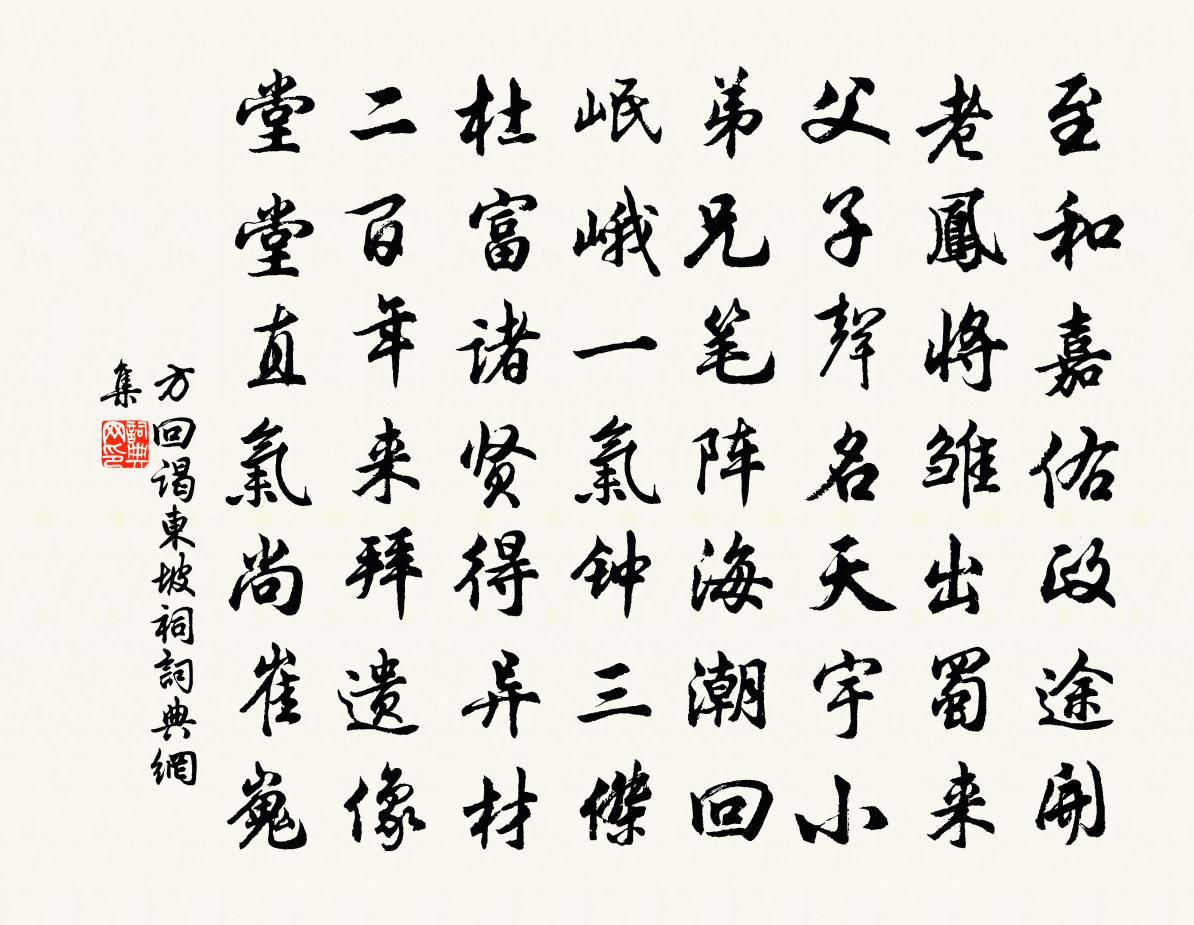 至和嘉佑政途開
老鳳將雏出蜀来
父子聲名天宇小
弟兄笔阵海潮回
岷峨一氣钟三傑
杜富诸贤得异材
二百年来拜遗像
堂堂直氣尚崔嵬
方回謁東坡祠詞典網
集
詞典网印